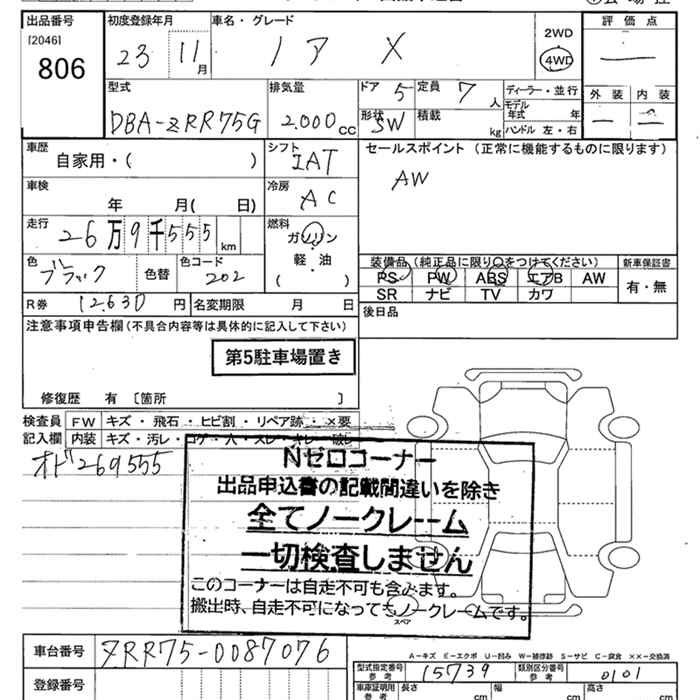 出品番号 初度登録年月 車名・グレード 評価点
[2046] 806 23 11月 ノア X 2WD 4WD
型式 排気量 ドア 5 定員 7 人 ディーラー・並行 外装 内装
DBA-ZRR75G 2.000 CC 形状 SW 積載 kg モデル年式 年 ハンドル 左・右
車歴 自家用・( ) シフト IAT セールスポイント (正常に機能するものに限ります)
車検 年 月( 日) 冷房 AC AW
走行 26万9千555 km 燃料 ガソリン 軽・油 ( )
色 ブラック 色替 色コード 202 装備品 (純正品に限り○をつけてください) 新車保証書
PS PW ABS エアB AW 有・無
SR ナビ TV カワ
R券 12.630 円 名変期限 月 日 後日品
注意事項申告欄 (不具合内容等は具体的に記入して下さい)
第5駐車場置き
修復歴 有 [箇所 ]
検査員 FW キズ・飛石・ヒビ割・リペア跡・×要
記入欄 内装 キズ・汚レ・コゲ・穴・スレ・キレ・破レ
オド269555
Nゼロコーナー
出品申込書の記載間違いを除き
全てノークレーム
一切検査しません
このコーナーは自走不可も含みます。
搬出時、自走不可になってもノークレームです。
スペア
車台番号 ZRR75-0087076
A-キズ E-エクボ U-凹み W-補修跡 S-サビ C-腐食 ××-交換済
型式指定番号 参考 15739 類別区分番号 参考 0101
登録番号 車庫証明用 参考 長さ cm 幅 cm 高さ cm